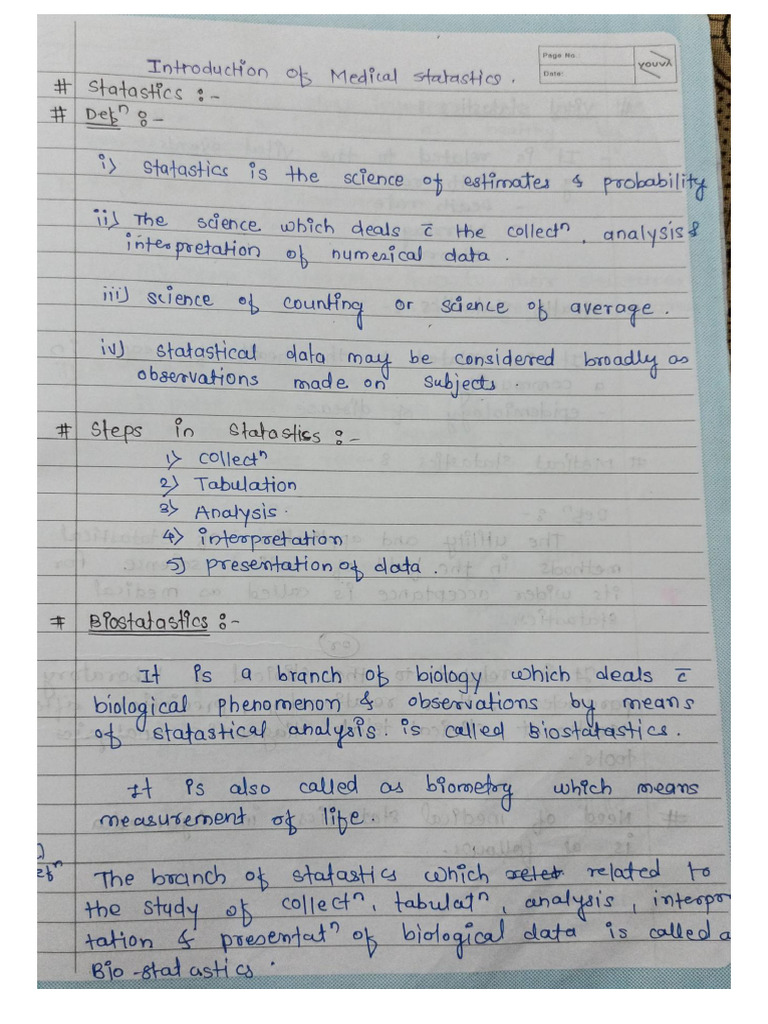 Page No.
Date:
YOUVA
Introduction of Medical statastics.
# Statastics :-
# Defⁿ :-
i) Statastics is the science of estimates & probability
ii) The science which deals c̄ the collectⁿ, analysis &
interpretation of numerical data.
iii) science of counting or science of average.
iv) Statastical data may be considered broadly as
observations made on subjects.
# Steps in Statastics :-
1) collectⁿ
2) Tabulation
3) Analysis.
4) interpretation
5) presentation of data.
# Biostatastics :-
It is a branch of biology which deals c̄
biological phenomenon & observations by means
of statastical analysis. is called Biostatastics.
It is also called as biometry which means
measurement of life.
The branch of statastics which related to
the study of collectⁿ, tabulatⁿ, analysis, interpr
tation & presentatⁿ of biological data is called a
Bio-statastics.